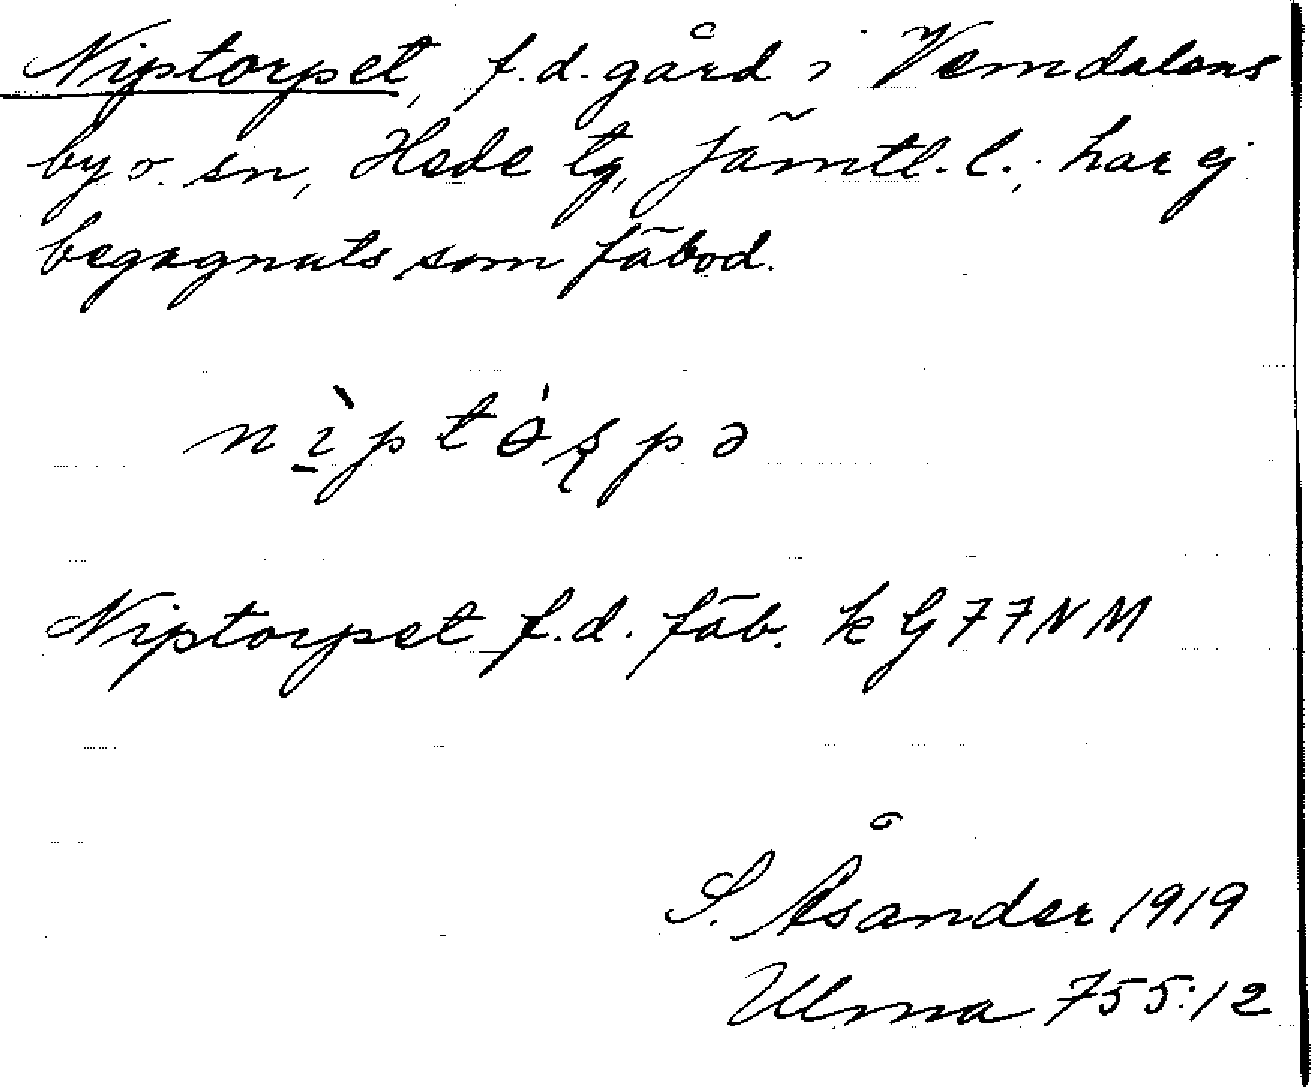 Niptorpet, f.d. gård i Vemdalens
by o. sn, Hede tg, Jämtl. l.; har ej
begagnats som fäbod.
Niptorpet f.d. fäb. k G77NM
S. Åsander 1919
Ulma 755:12